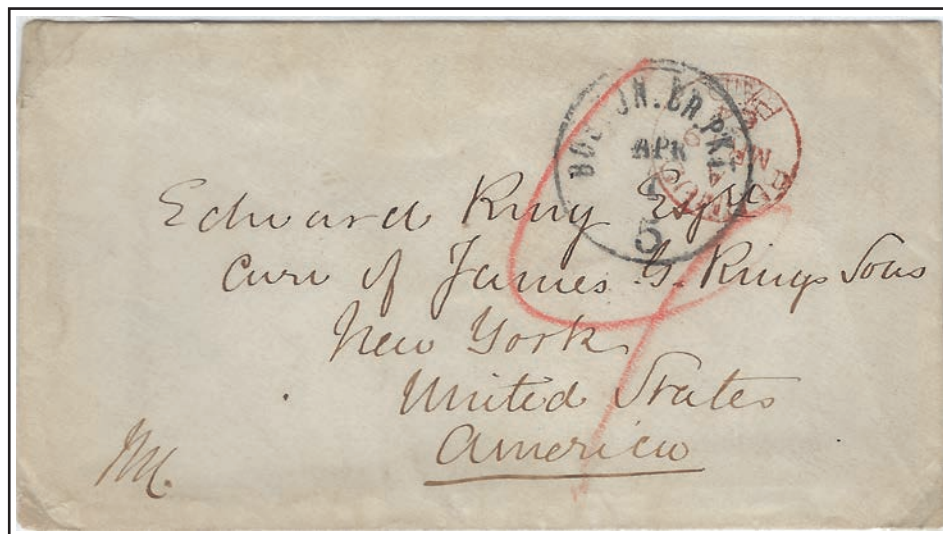 BOSTON. BR. PKT.
APR
5
Edward King Esqr
care of James G. Kings Sons
New York
United States
America